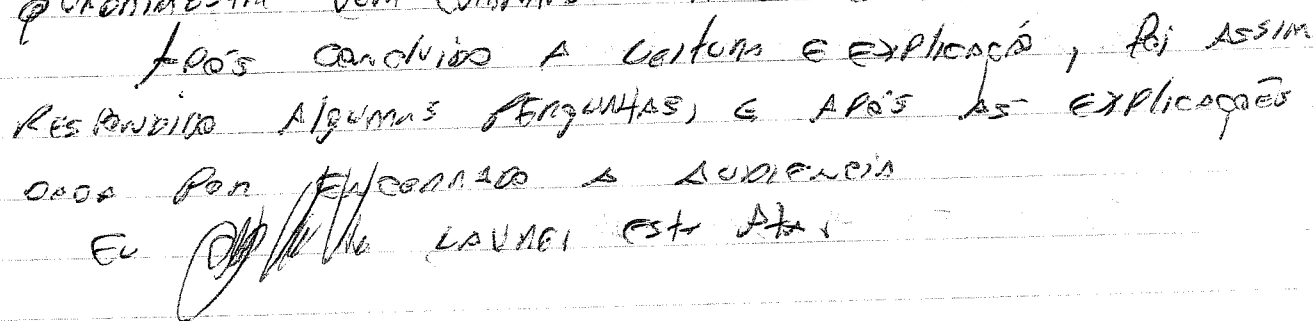 Após concluido A Leitura E Explicaçõ, foi Assim
Respondido Algumas Perguntas, E Após As Explicações
Dada Por Encerrado A Audiencia
Eu Lavrei esta Ata.